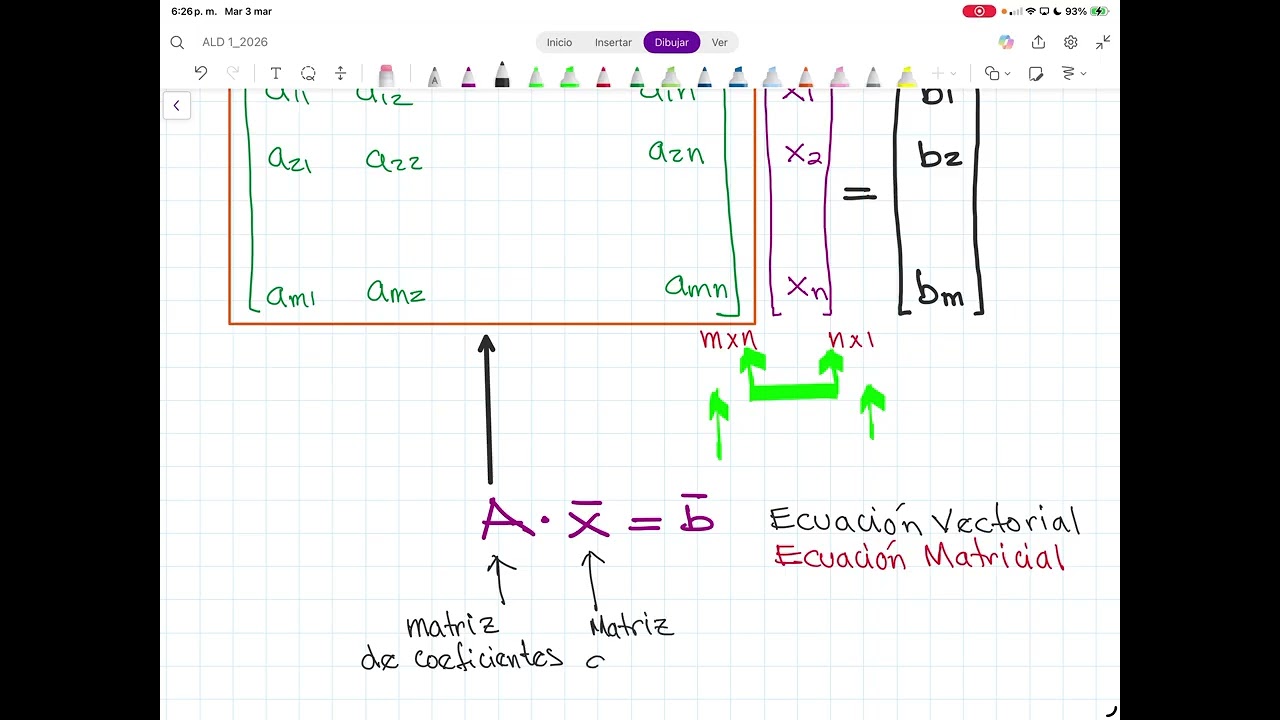 6:26 p. m. Mar 3 mar 93%
ALD 1_2026 Inicio Insertar Dibujar Ver
a11 a12 a1n x1 b1
a21 a22 a2n x2 = b2
am1 am2 amn xn bm
mxn nx1
A · x̄ = b̄ Ecuación Vectorial
Ecuación Matricial
matriz Matriz
de coeficientes